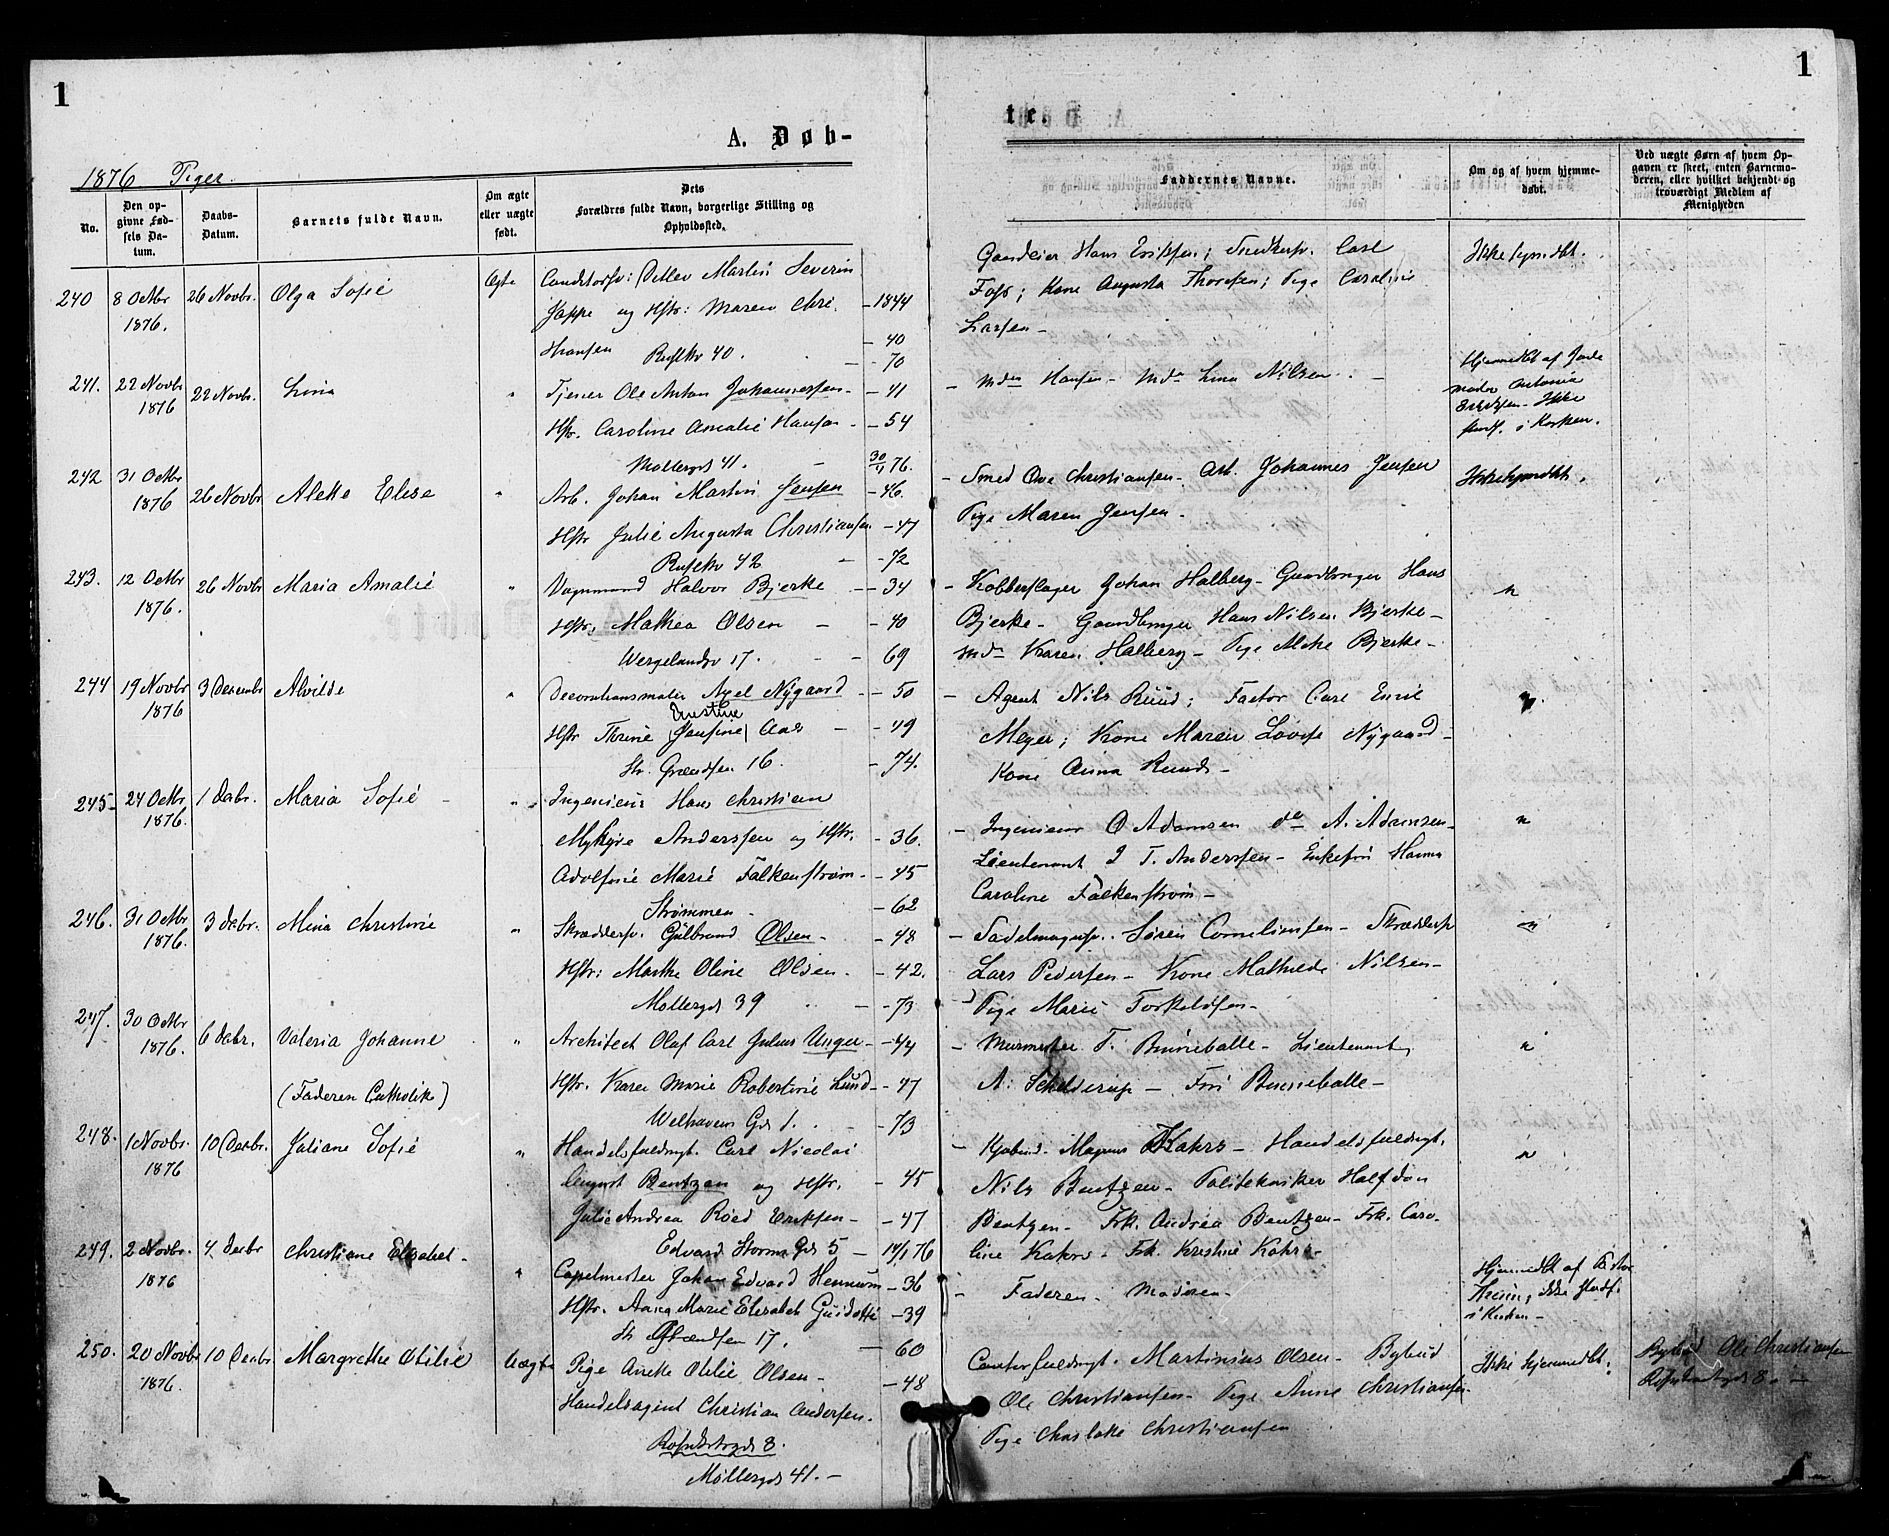 1
1
A. Døb-
te.
1876 Piger.
No.
Den op-
givne Fød-
sels Da-
tum.
Daabs-
Datum.
Barnets fulde Navn.
Om ægte
eller uægte
født.
Dets
Forældres fulde Navn, borgerlige Stilling og
Opholdssted.
Faddernes Navne.
Om og af hvem hjemme-
døbt.
Ved uægte Børn af hvem Op-
gaven er skeet, enten Barnemo-
deren, eller hvilket bekjendt og
troværdigt Medlem af
Menigheden
240 8 Octbr 26 Novbr. Olga Sofie Ægte Detlev Martin Severin
1876.
Jappe og Hstr: Maren Chri. - 1844
Hansen 40. - 40
- 70
Gaardeier Hans Eriksen; Snedkersv. Carl
Foss; Kone Augusta Thoresen; Pige Caroline
Larsen -
Ikke hjmdbt.
241. 22 Novbr 22 Novbr. Lina " Tjener Ole Anton Johannessen - 41
1876
Hstr. Caroline Amalie Hansen - 54
Møllergd 41. - 30/4 76.
- Mdm Hansen - Mdm Lina Nilsen. -
Hjemmedbt af Jorde
moder Antonia
Ikke
stadf. i Kirken.
242 31 Octbr 26 Novbr Alette Elise " Arb. Johan Martin Jensen - 46.
1876
Hstr Julie Augusta Christiansen - 47
42 - 72
- Smed Ove Christiansen. Arb. Johannes Jensen
Pige Maren Jensen -
Ikke hjmdbt.
243. 12 Octbr 26 Novbr Maria Amalie " Vognmand Halvor Bjerke - 34
1876.
Hstr. Mathea Olsen - - 40
Wergelandsv 17. - - 69
- Kobberslager Johan Halberg - Gaardbruger Hans
Bjerke - Gaardbruger Hans Nilsen Bjerke -
Mdm Karen Halberg - Pige Alette Bjerke -
"
244 19 Novbr 3 Decembr Alvilde " Decorationsmaler Axel Nygaard - 50
1876
Ernstine
Hstr Thrine (Jensine) Aas - - 49
Str. Grændsen 16. - 74.
- Agent Nils Ruud; Factor Carl Emil
Meyer; Kone Maren Lovise Nygaard -
Kone Anna Ruud -
"
245 - 24 Octbr 1 Debr. Maria Sofie - " Ingenieur Hans Christian
1876.
Anderssen og Hstr. - 36.
Adolfine Marie Falkenstrøm - - 45
Strømmen - - 62
- Ingenieur O Adamsen do A. Adamsen -
Lieutenant I T. Anderssen - Enkefru Hanna
Caroline Falkenstrøm -
"
246. 31 Octbr 3 Debr. Mina Christine " Skræddersv. Gulbrand Olsen - - 48
1876.
Hstr: Marthe Oline Olsen. - 42.
Møllergd 39 - 73
- Sadelmagersv. Søren Corneliussen - Skræddersv
Lars Pedersen - Kone Mathilde Nilsen -
Pige Marie Torkildsen -
"
247. 30 Octbr 6 Debr. Valeria Johanne " Architect Oluf Carl Julius Unger - 44
1876.
(Faderen Catholik)
Hstr. Karen Marie Robertine Lund - 47
Welhavens Gd 1. - 73
- Murmester T. Binneballe - Lieutenant
A. Schelderup - Fru Binneballe -
"
248. 1 Novbr. 10 Decbr. Juliane Sofie " Handelsfuldmgt. Carl Nicolai
1876
August Bentzen og Hstr. - 45
Julie Andrea Röed Eriksen - - 47
Edvard Storms Gd 5 - 14/1 76
- Kjøbmd. Magnus Kahrs - Handelsfuldmgt.
Nils Bentzen - Politekniker Halfdan
Bentzen - Frk. Andrea Bentzen - Frk. Caro-
line Kahrs - Frk Kristine Kahrs -
"
249. 2 Novbr. 4. Decbr Christiane Elisabet - " Capelmester Johan Edvard Hennum - 36
1876
Hstr. Anna Marie Elisabet Guidotti - 39
Str Grændsen 17. - 60
- Faderen - Moderen -
Hjemmedbt af
ikke stadf.
i Kirken -
250. 20 Novbr 10 Decbr. Margrethe Otilie Uægte Pige Anette Otilie Olsen - - 48
1876.
Handelsagent Christian Andersen.
8.
Møllergd 41. -
Contorfuldmgt. Martinius Olsen - Bybud
Ole Christiansen - Pige Anne Christiansen
Pige Charlotte Christiansen
Ikke hjemmedbt.
Bybud Ole Christiansen
8. -